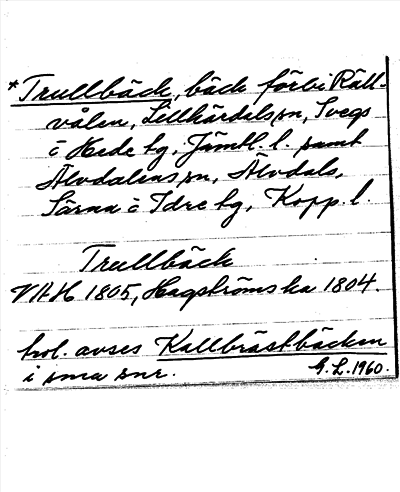 *Trullbäck, bäck förbi Räll-
vålen, Lillhärdals sn, Svegs
o Hede tg, Jämtl. l. samt
Älvdalens sn, Älvdals,
Särna o Idre tg, Kopp. l.
Trullbäck
VAH 1805, Hagströms ka 1804.
trol. avses Kallbrästbäcken
i sma snr.
G.L. 1960.